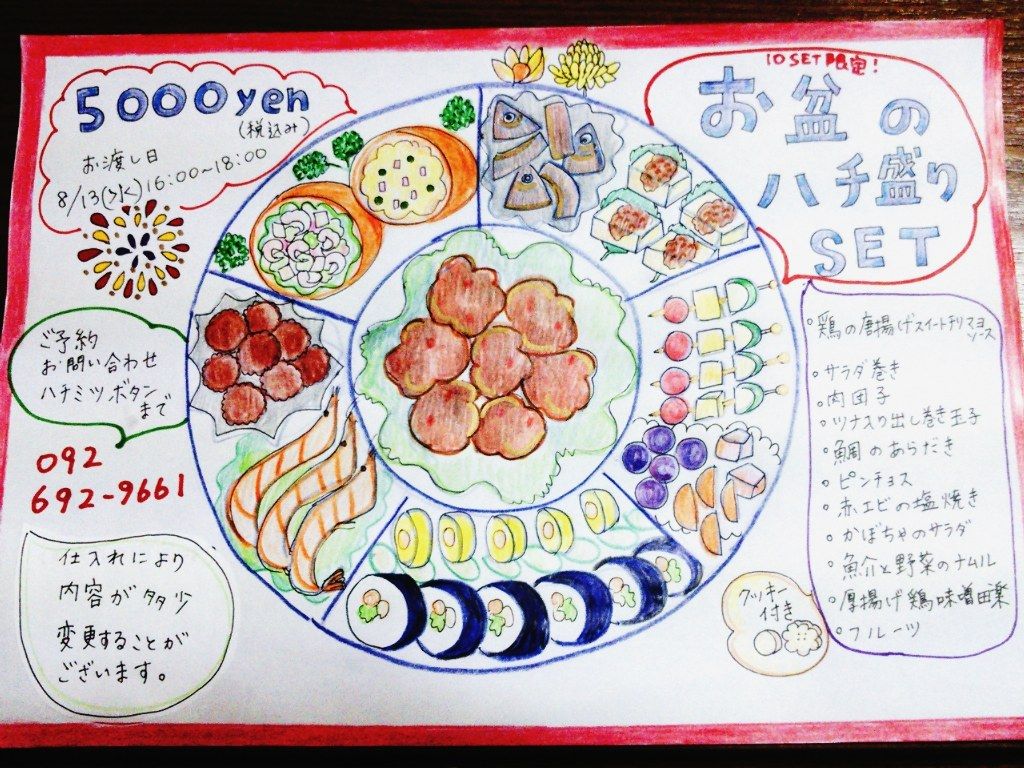 5000yen
(税込み)
お渡し日
8/13(水)16:00~18:00
10SET限定!
お盆の
ハチ盛り
SET
ご予約
お問い合わせ
ハチミツボタン
まで
092
692-9661
仕入れにより
内容が多少
変更することが
ございます。
・鶏の唐揚げスイートチリマヨ
ソース
・サラダ巻き
・肉団子
・ツナ入り出し巻き玉子
・鯛のあらだき
・ピンチョス
・赤エビの塩焼き
・かぼちゃのサラダ
・魚介と野菜のナムル
・厚揚げ鶏味噌田楽
・フルーツ
クッキー
付き